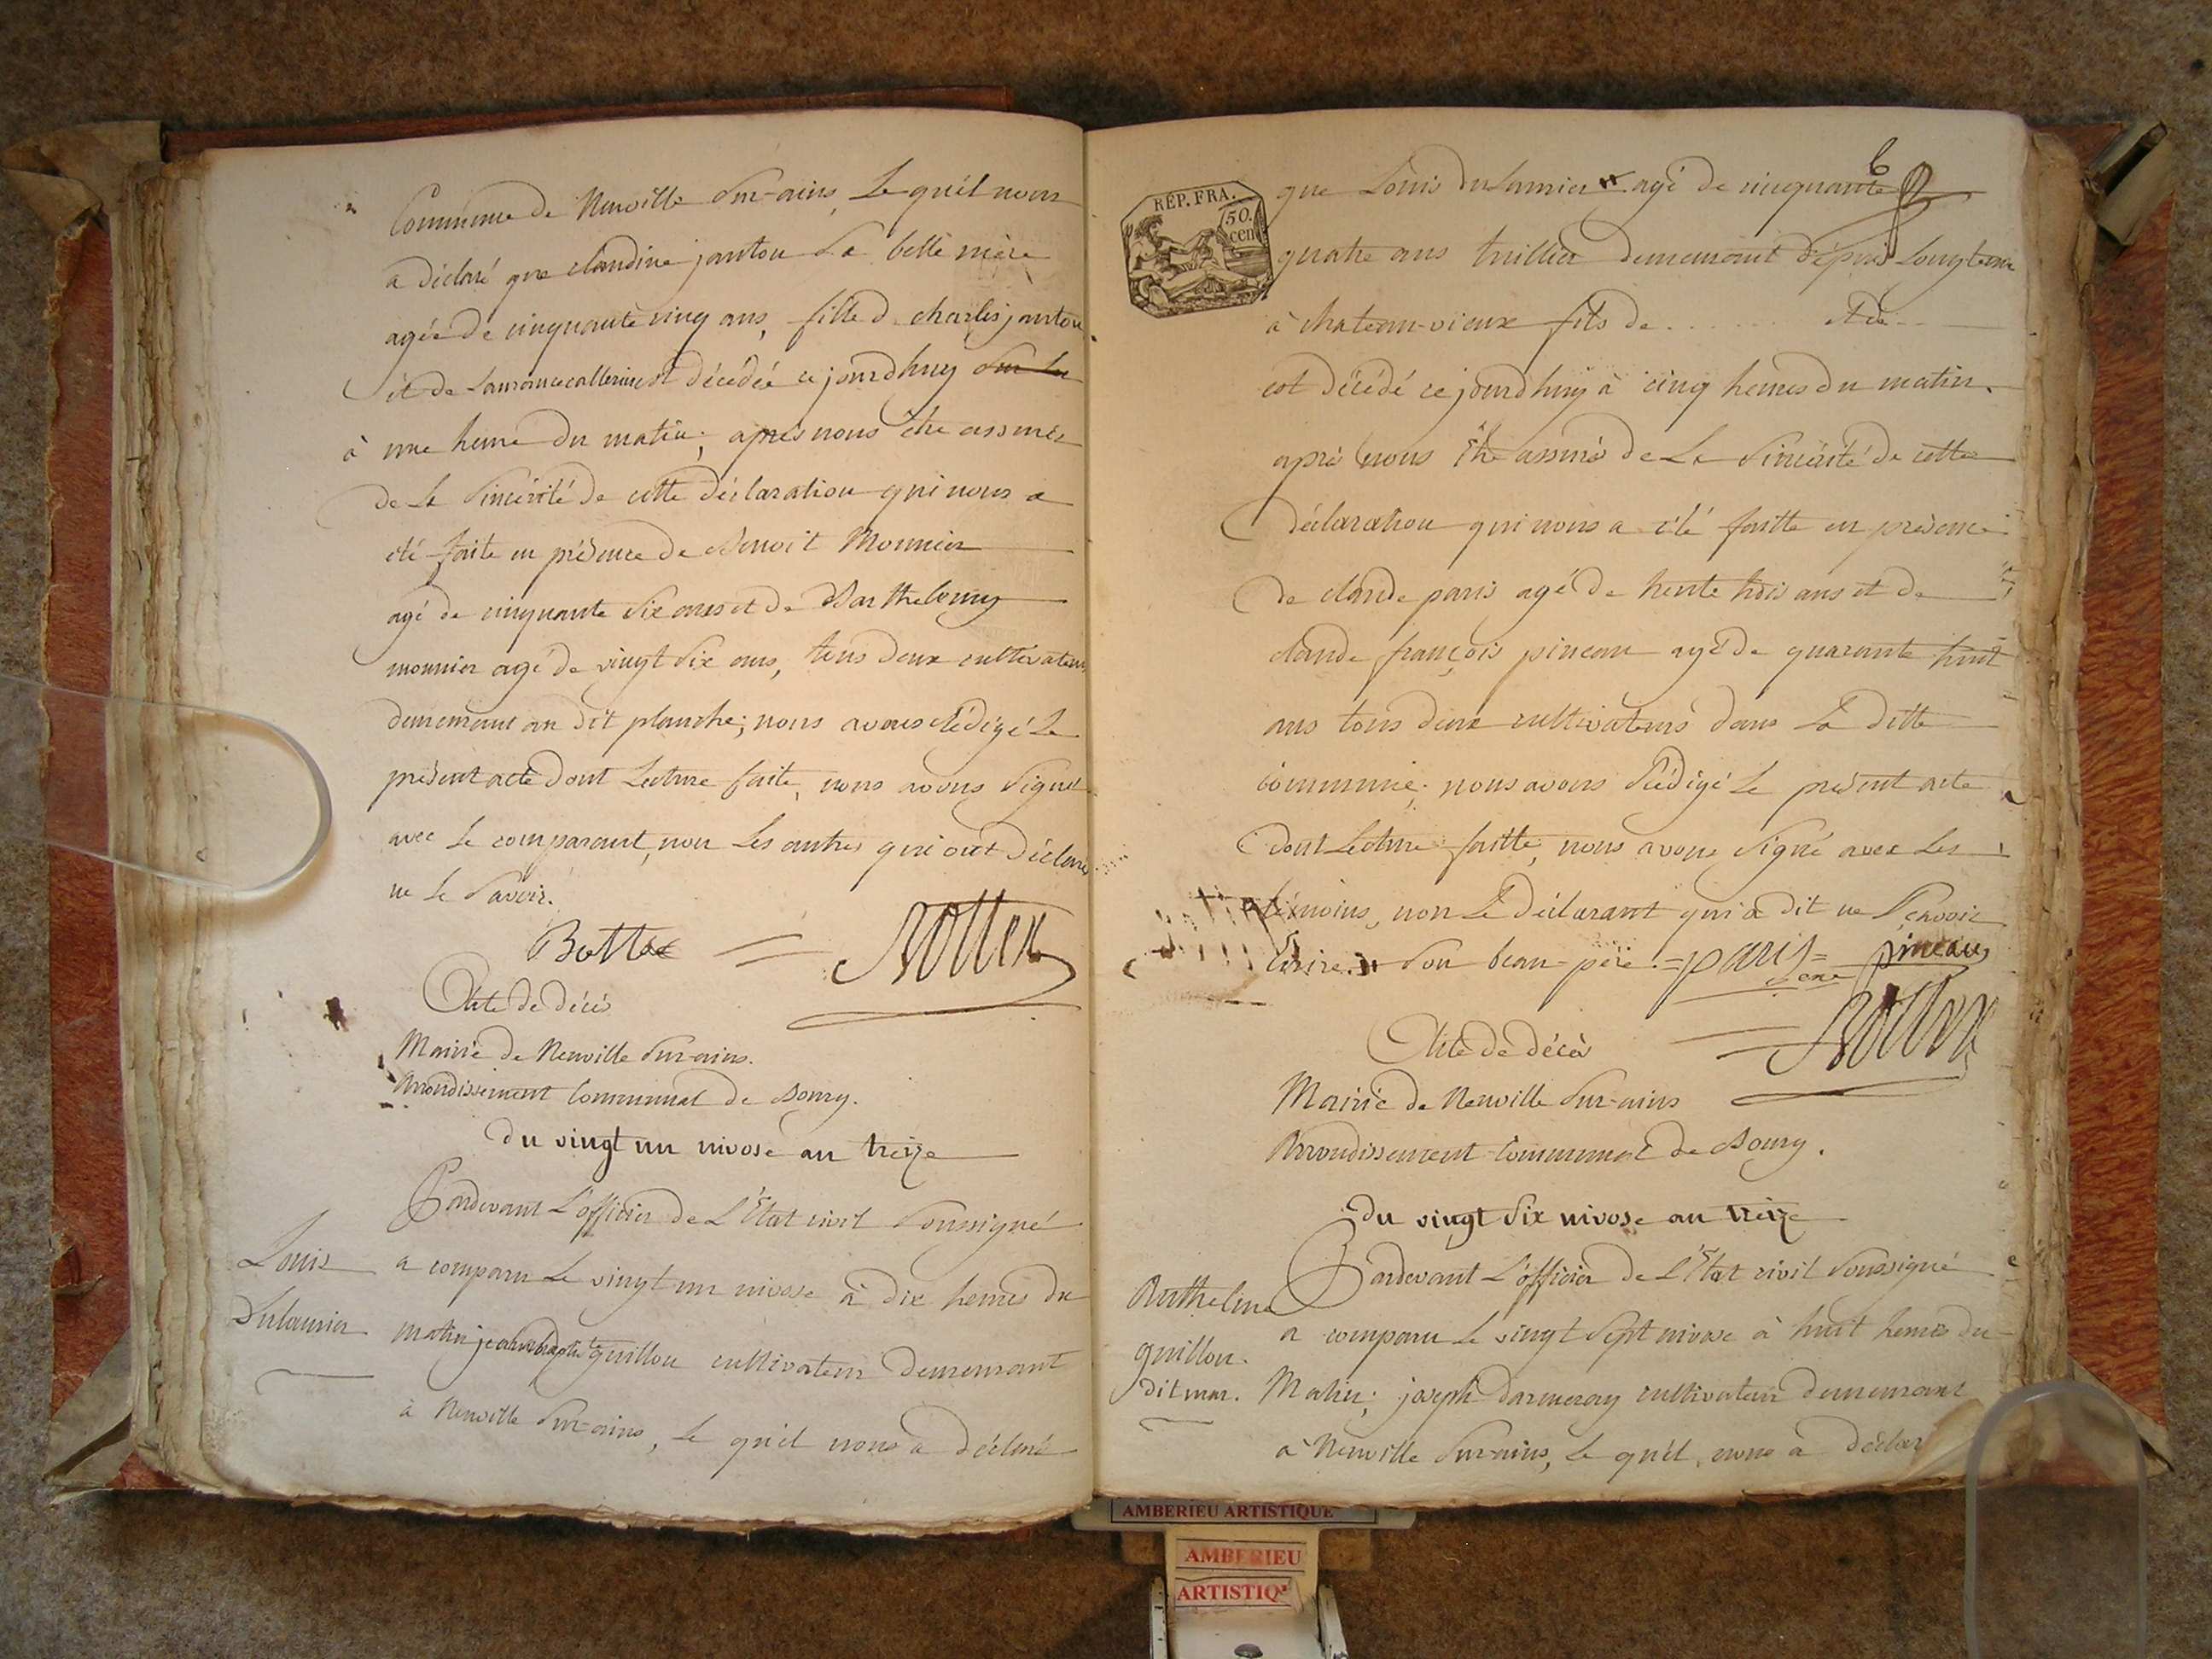 Commune de Neuville Sur-ains, Le quél nous
a déclaré que claudine janton Sa belle mère
agée de cinquante cinq ans, fille d charles janton
et de Laurance callerin est décédée ce jourdhuy Sur Les
à une heure du matin; après nous être assurés
de La Sincérité de cette déclaration qui nous a
été faite en présence de Benoit Monnier
agé de cinquante Six ans et de Barthelemy
monnier agé de vingt Six ans, tous deux cultivateurs
demeurant au dit planche; nous avons Rédigé Le
présent acte dont Lecture faite, nous avons Signé
avec Le comparant, non Les autres qui ont déclaré
ne Le Savoir.
Acte de décès
Mairie de Neuville Sur-ains.
Arrondissement Communal de Bourg.
du vingt un nivose an treize
Pardevant L'officier de L'État civil Soussigné
Louis
Dulaurier
a comparu Le vingt un nivose à dix heures du
matin jean baptiste guillon cultivateur demeurant
à Neuville Sur-ains, Le quél nous a déclaré
6
RÉP. FRA.
50.
cen
que Louis duLaurier agé de cinquante
quatre ans tuillier demeurant dépuis Longtems
à chateau-vieux fils de ........ et de ...
est décédé ce jourdhuy à cinq heures du matin.
après nous être assuré de La Sincérité de cette
déclaration qui nous a été faitte en présence
de claude paris agé de trente trois ans et de
claude françois pineau agé de quarante huit
ans tous deux cultivateurs dans La ditte
commune; nous avons Rédigé Le présent acte
dont Lecture faitte, nous avons Signé avec Les
témoins, non Le déclarant qui a dit ne Scavoir
Ecrire. Son beau-père. = paris = pineau
Acte de décès
Mairie de Neuville Sur-ains
Arrondissement Communal de Bourg.
du vingt Six nivose an treize
Pardevant L'officier de L'État civil Soussigné
Antheline
guillon.
dit mar.
a comparu Le vingt Sept nivose à huit heures du
Matin; joseph darmeray cultivateur demeurant
à Neuville Sur-ains, Le quél, nous a déclar
AMBERIEU ARTISTIQUE
AMBERIEU
ARTISTIQ